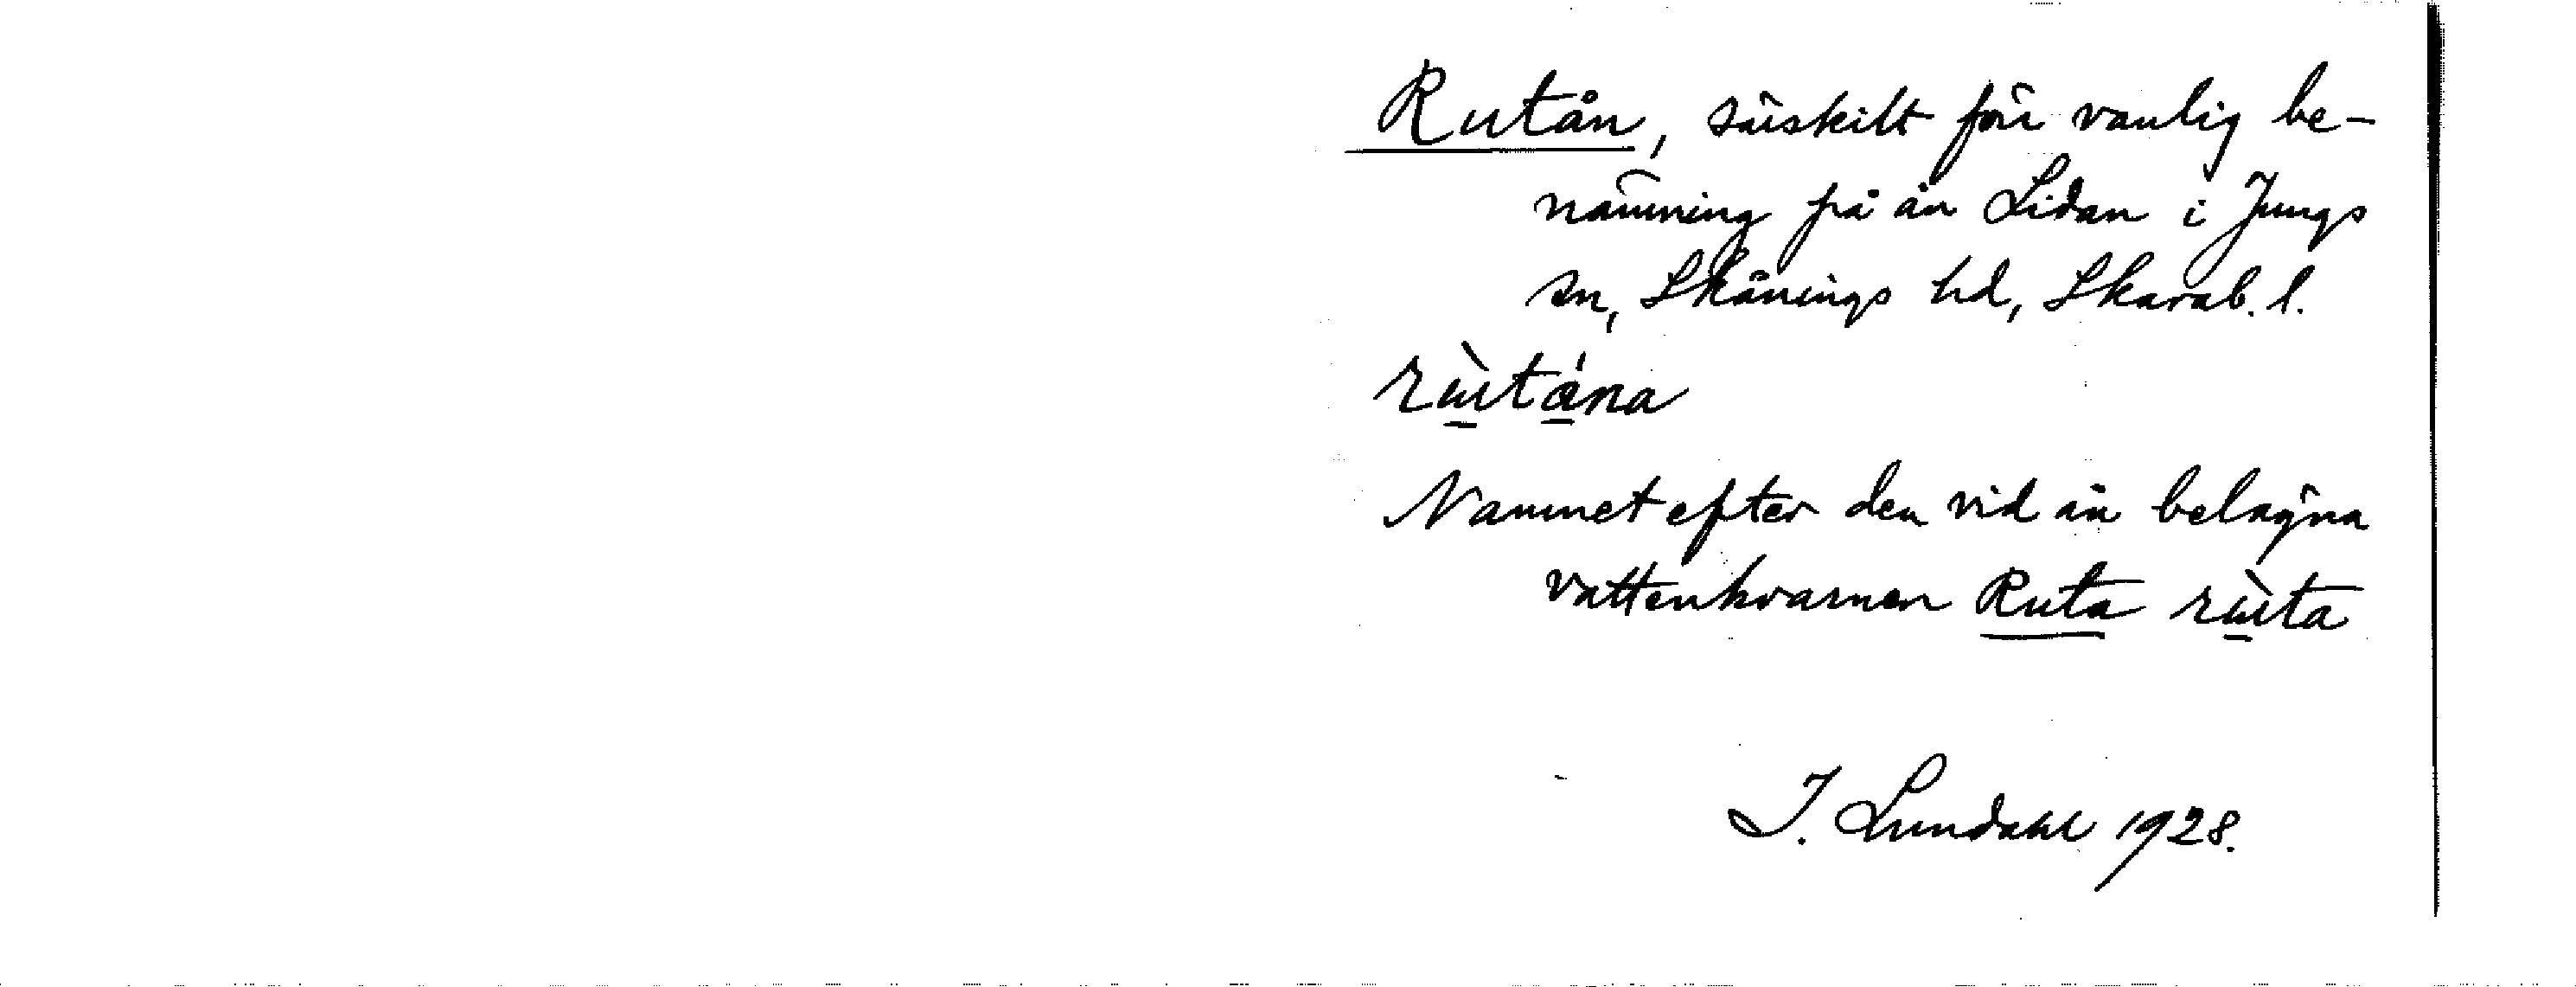 Rutån, särskilt förr vanlig be-
nämning på ån Lidan i Jungs
sn, Skånings hd, Skarab. l.
rùtána
Namnet efter den vid ån belägna
vattenkvarnen Ruta rùta
I. Lundahl 1928.